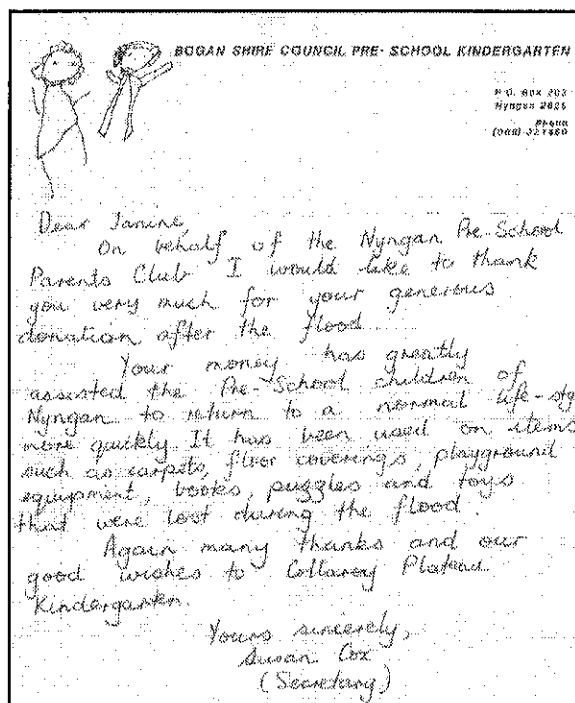 BOGAN SHIRE COUNCIL PRE-SCHOOL KINDERGARTEN
P.O. Box 203
Nyngan 2825
Phone
Dear Janine,
On behalf of the Nyngan Pre-School
Parents Club I would like to thank
you very much for your generous
donation after the flood.
Your money has greatly
assisted the Pre-School children of
Nyngan to return to a normal life-style
more quickly. It has been used on items
such as carpets, floor coverings, playground
equipment, books, puzzles and toys
that were lost during the flood.
Again many thanks and our
good wishes to Collaroy Plateau
Kindergarten.
Yours sincerely,
Susan Cox
(Secretary)